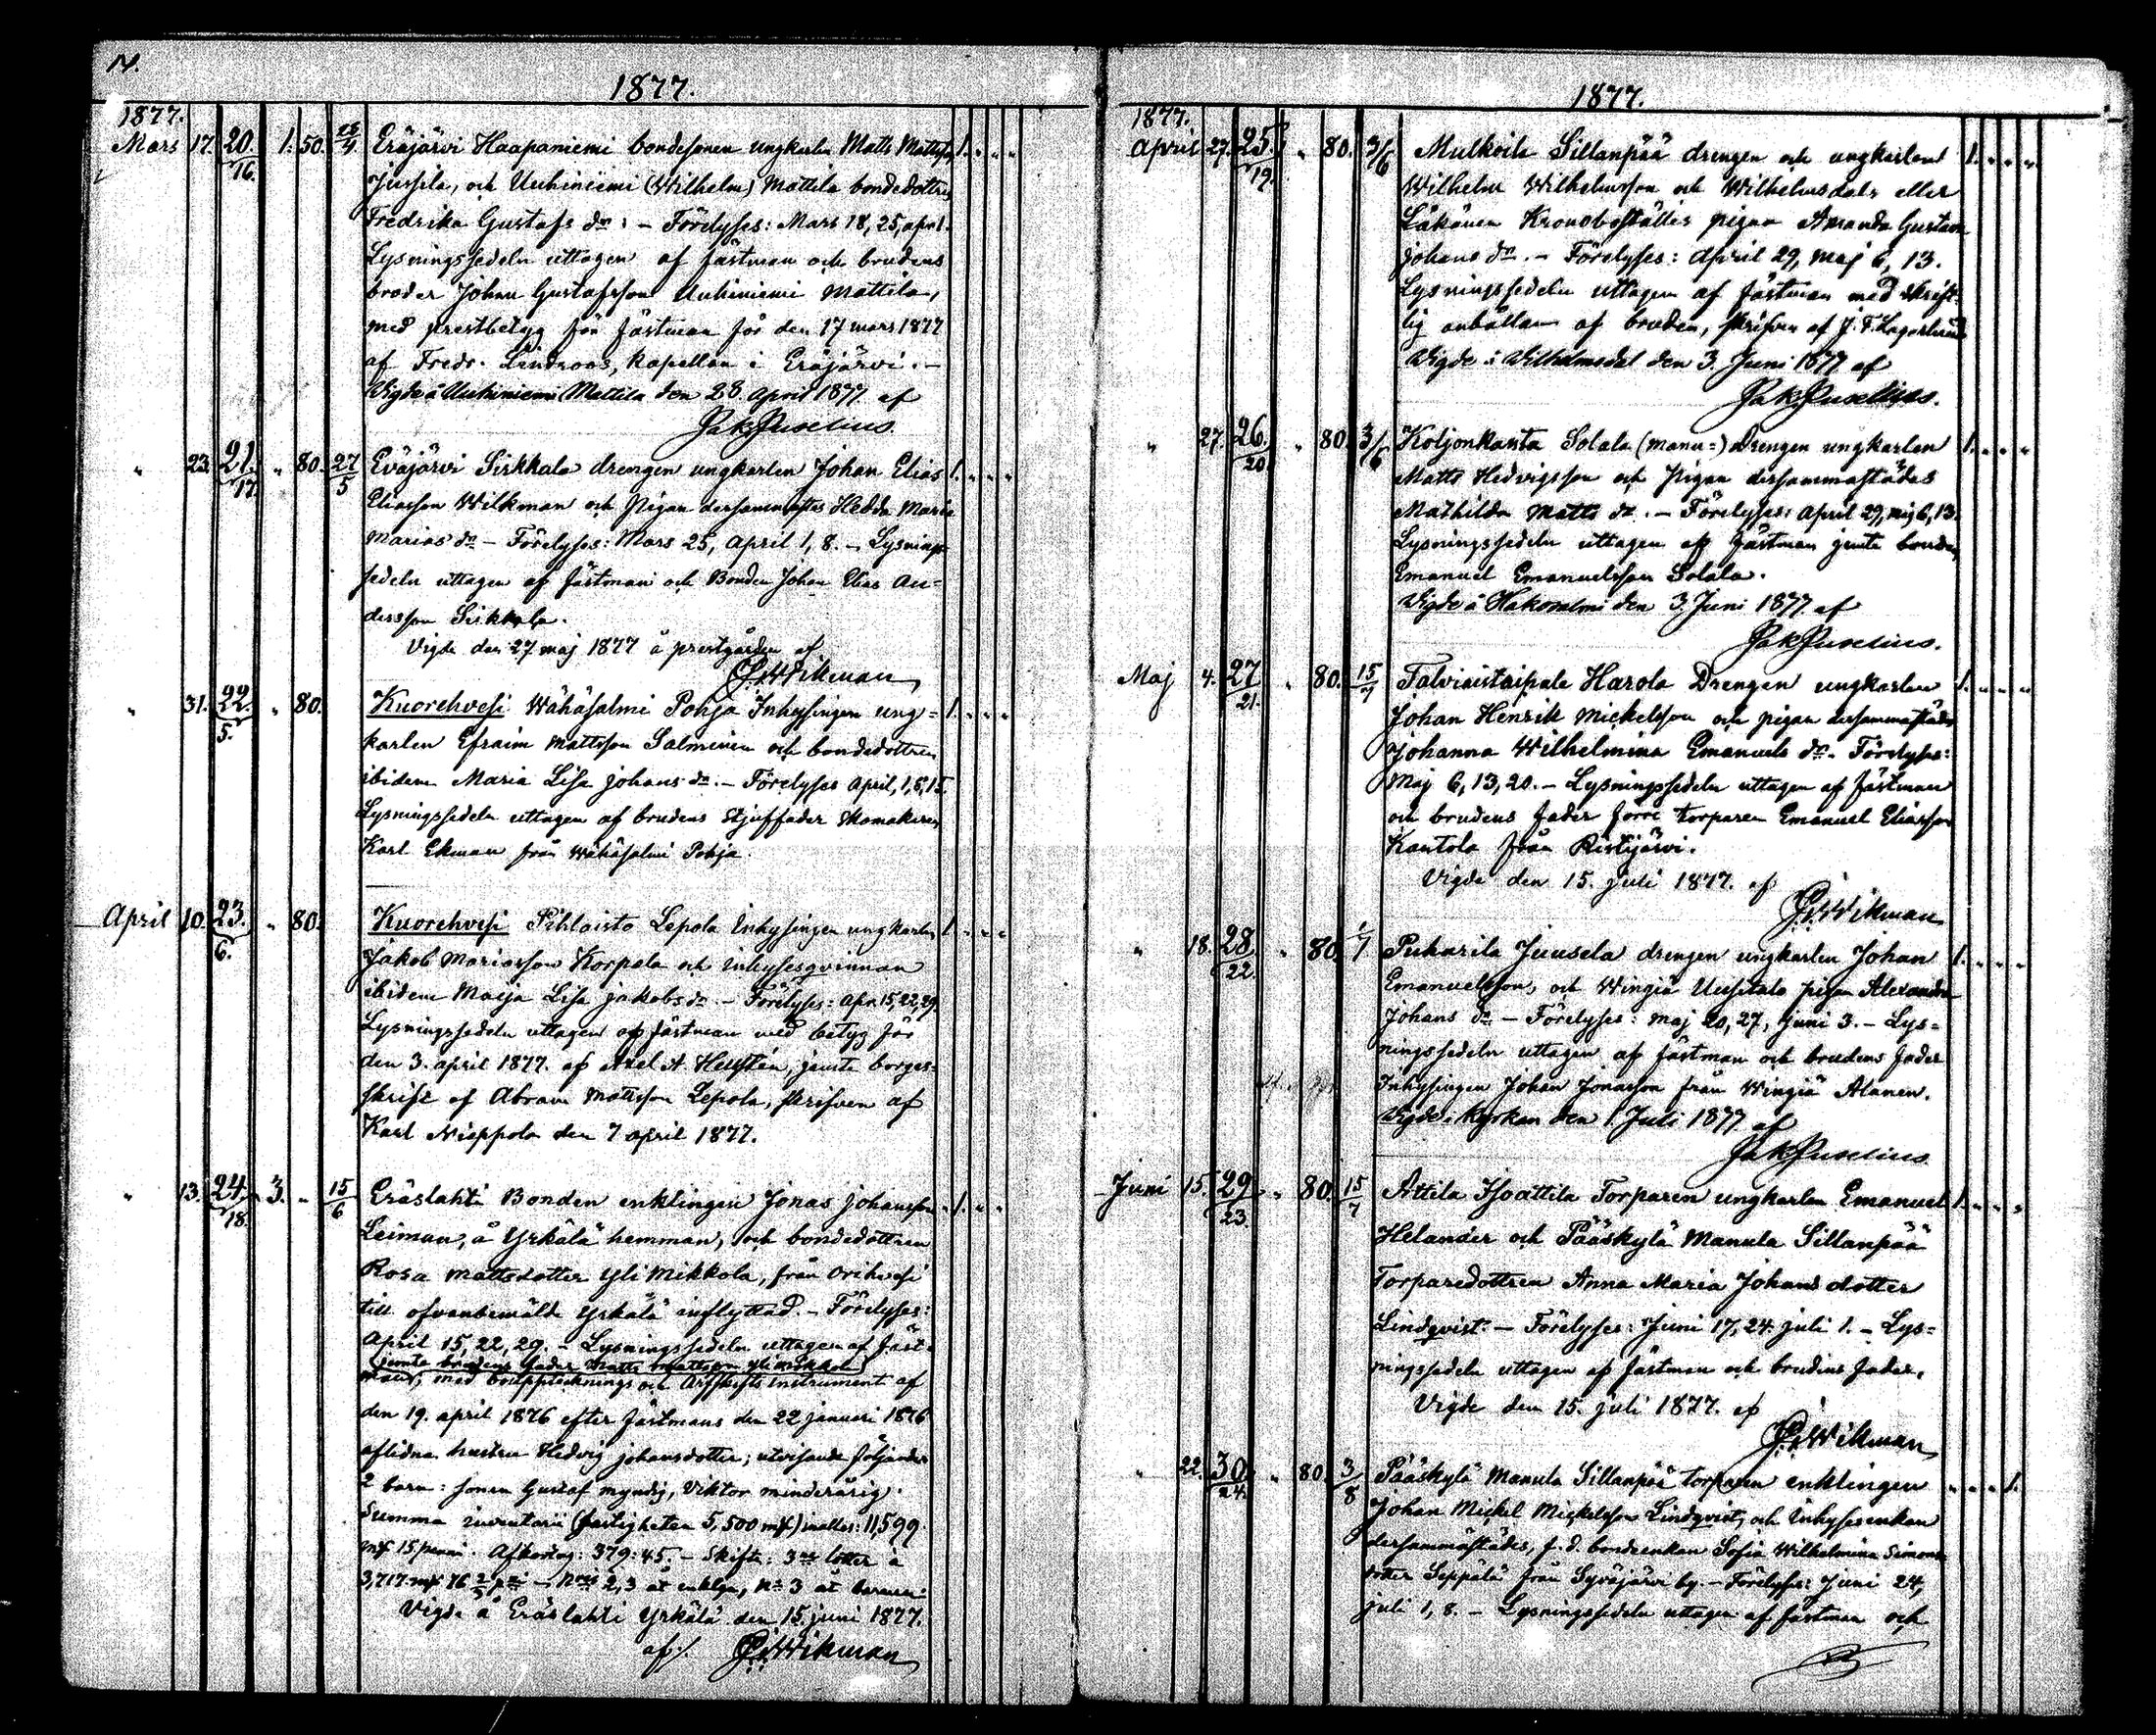 1877.
1877.
Mars 17. 20./16. 1. 50. 28/4 Eräjärvi Haapaniemi bondesonen ungkarlen Matts Mattsson 1. „ „ „
Jussila, och Uuhiniemi (Wilhelm) Mattila bondedottren
Fredrika Gustafs dr: – Förelyses: Mars 18, 25, april.
Lysningssedeln uttagen af fästman och brudens
broder Johan Gustafsson Uuhiniemi Mattila,
med prestbetyg för fästman för den 17 mars 1877
af Fredr. Lindroos, kapellan i Eräjärvi. –
Vigde å Uuhiniemi Mattila den 28. april 1877 af
Jak Juselius.
„ 23. 21./17. „ 80. 27/5 Eräjärvi Sirkkala drengen ungkarlen Johan Elias 1. „ „ „
Eliasson Wilkman och Pigan dersammastädes Hedda Maria
Marias dr – Förelyses: Mars 25, April 1, 8. – Lysnings-
sedeln uttagen af fästman och Bonden Johan Elias An-
dersson Sirkkala.
Vigde den 27 maj 1877 å prestgården af
Wikman
„ 31. 22./5. „ 80. Kuorehvesi Wähäsalmi Pohja Inhysingen ung- 1. „ „ „
karlen Efraim Mattsson Salminen och bondedottren
ibidem Maria Lisa Johans dr. – Förelyses April, 1, 8, 15.
Lysningssedeln uttagen af brudens stjuffader skomakaren
Karl Ekman från Wähäsalmi Pohja.
April 10. 23./6. „ 80. Kuorehvesi Pihlaisto Lepola Inhysingen ungkarlen 1. „ „ „
Jakob Mariasson Korpela och inhysesqvinnan
ibidem Maija Lisa Jakobs dr – Förelyses: Apr. 15, 22, 29.
Lysningssedeln uttagen af fästman med betyg för
den 3. april 1877. af Axel A. Hellstén, jemte borges-
skrift af Abram Mattsson Lepola, skrifven af
Karl Nieppola den 7 april 1877.
„ 13. 24./18. 3. „ 15/6 Eräslahti Bonden enklingen Jonas Johansson „ 1. „ „
Leiman, å Yrkälä hemman, och bondedottren
Rosa Mattsdotter Yli Mikkola, från Orihvesi
till ofvanbemälde Yrkälä inflyttad. – Förelyses:
April 15, 22, 29. – Lysningssedeln uttagen af fäst-
(jemte brudens fader Matts Mattsson Ylimikkola)
man, med bouppteknings och Arfskifts instrument af
den 19. april 1876 efter fästmans den 22 januari 1876
aflidna hustru Hedvig Johansdotter; utvisande följande
2 barn: sonen Gustaf myndig, Viktor minderårig.
Summa inventarii (fastigheten 5,500 mk) inalles: 11,599
mk 15 penni. Afkortng: 379:45. – Skifte: 3ne lotter a
3,717 mk 76 2/3 pni – 2,3 åt enklgn, No 3 åt barnen:
Vigde å Eräslahti Yrkälä den 15. juni 1877.
af/. Wikman
1877.
1877.
April 27. 25./19. „ 80. 3/6 Mulkoila Sillanpää drengen och ungkarlen 1. „ „ „
Wilhelm Wilhelmsson och Wilhelmsdals eller
Kronobolställes pigan Amanda Gustava
Johans dr. – Förelyses: April 29, Maj 6, 13.
Lysningssedeln uttagen af fästman med skrift-
lig anhållan af bruden, skrifven af J. F. Lagerlund
Vigde i Wilhelmsdal den 3. Juni 1877 af
Jak Juselius.
„ 27. 26./20 „ 80. 3/6 Koljonkanta Solala (Manu=) Drengen ungkarlen 1. „ „ „
Matts Hedvigsson och Pigan dersammastädes
Mathilda Matts dr. – Förelyses: April 29, maj 6, 13.
Lysningssedeln uttagen af fästman jemte bonden
Emanuel Emanuelsson Solala.
Vigde å Hakosalmi den 3. Juni 1877 af
Jak Juselius.
Maj 4. 27/21. „ 80. 15/7 Talviaistaipale Harola Drengen ungkarlen 1. „ „ „
Johan Henrik Mickelsson och pigan dersammastädes
Johanna Wilhelmina Emanuels dr. Förelyses:
Maj 6, 13, 20. – Lysningssedeln uttagen af fästman
och brudens fader förre torparen Emanuel Eliasson
Kantola från Ristijärvi.
Vigde den 15. juli 1877. af
Wikman
„ 18. 28/22. „ 80. 1/7 Pukarila Juusela drengen ungkarlen Johan 1. „ „ „
Emanuelsson, och Wingiä Uusitalo pigan Alexandra
Johans dr – Förelyses: Maj 20, 27, Juni 3. – Lys-
ningssedeln uttagen af fästman och brudens fader
Inhysingen Johan Jonasson från Wingiä Alanen.
Vigde i kyrkan den 1. Juli 1877 af
Jak Juselius
Juni 15. 29/23. „ 80. 15/7 Attila Isoattila Torparen ungkarlen Emanuel 1. „ „ „
Helander och Pääskylä Manula Sillanpää
Torparedottren Anna Maria Johansdotter
Lindqvist. – Förelyses: Juni 17, 24. juli 1. – Lys-
ningssedeln uttagen af fästman och brudens fader.
Vigde den 15. juli 1877. af
Wikman
„ 22. 30/24. „ 80. 3/8 Pääskylä Manula Sillanpää torparen enklingen „ „ „ 1.
Johan Mickel Mickelsson Lindqvist, och Inhysesenkan
dersammastädes, f. d. bondeenkan Sofia Wilhelmina Simons-
dotter Seppälä från Syväjärvi by. – Förelyses: Juni 24,
juli 1, 8. – Lysningssedeln uttagen af fästman och